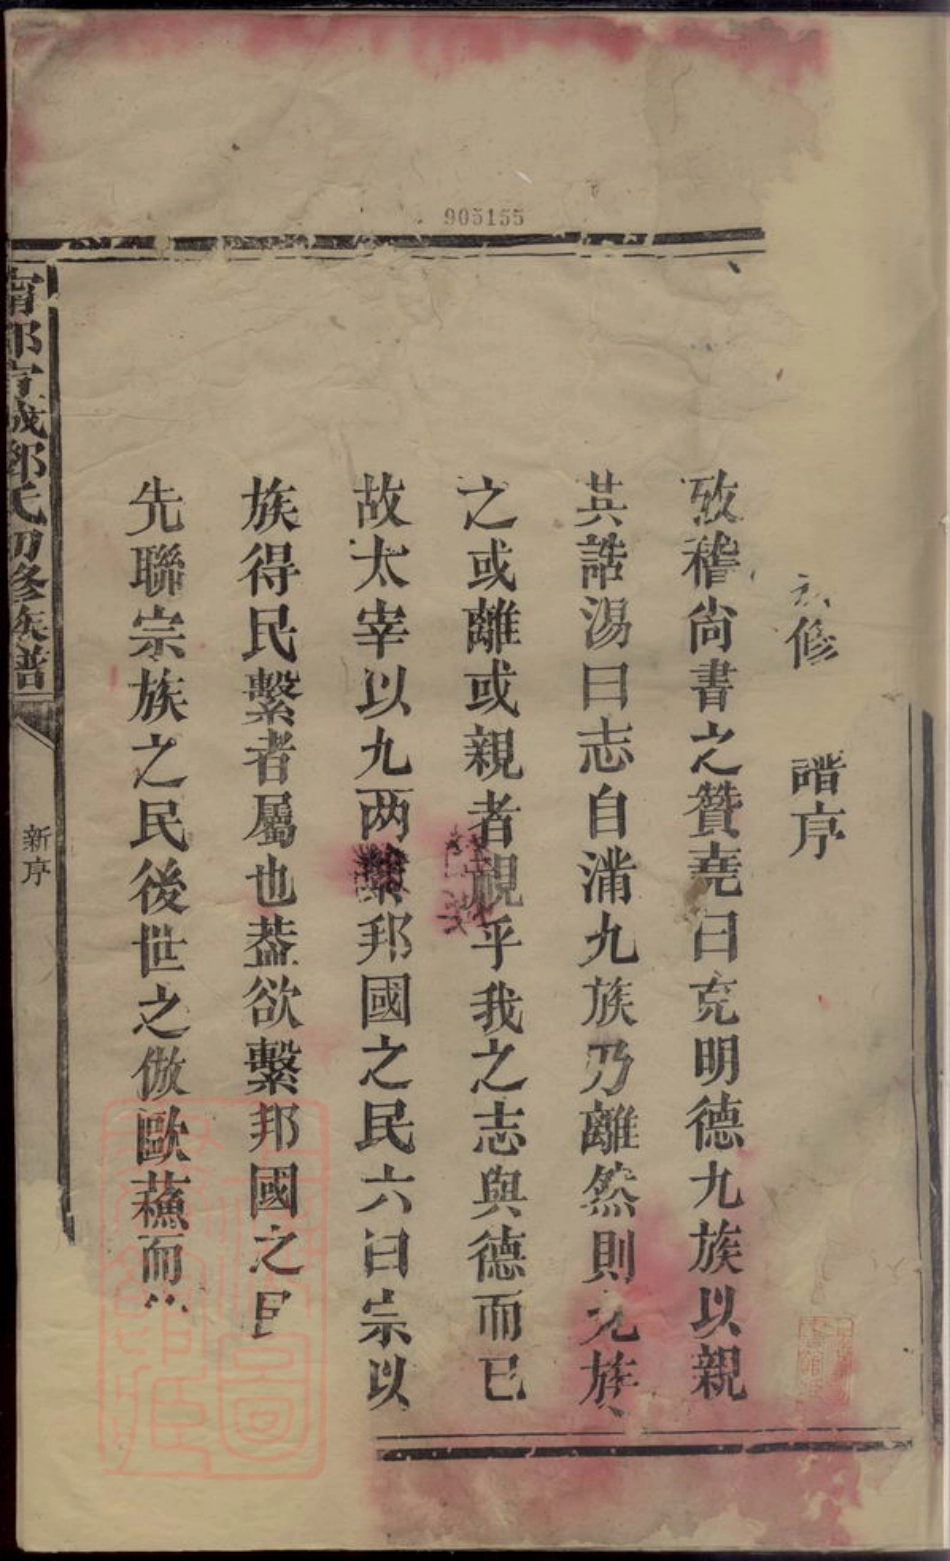 905155
修 譜序
攷稽尚書之贊堯曰克明德九族以親
其誥湯曰志自滿九族乃離然則九族
之或離或親者視乎我之志與德而已
故太宰以九两繫邦國之民六曰宗以
族得民繫者屬也葢欲繫邦國之民
先聯宗族之民後世之倣歐蘓而
甯邵宣城鄧氏初修族譜
新序